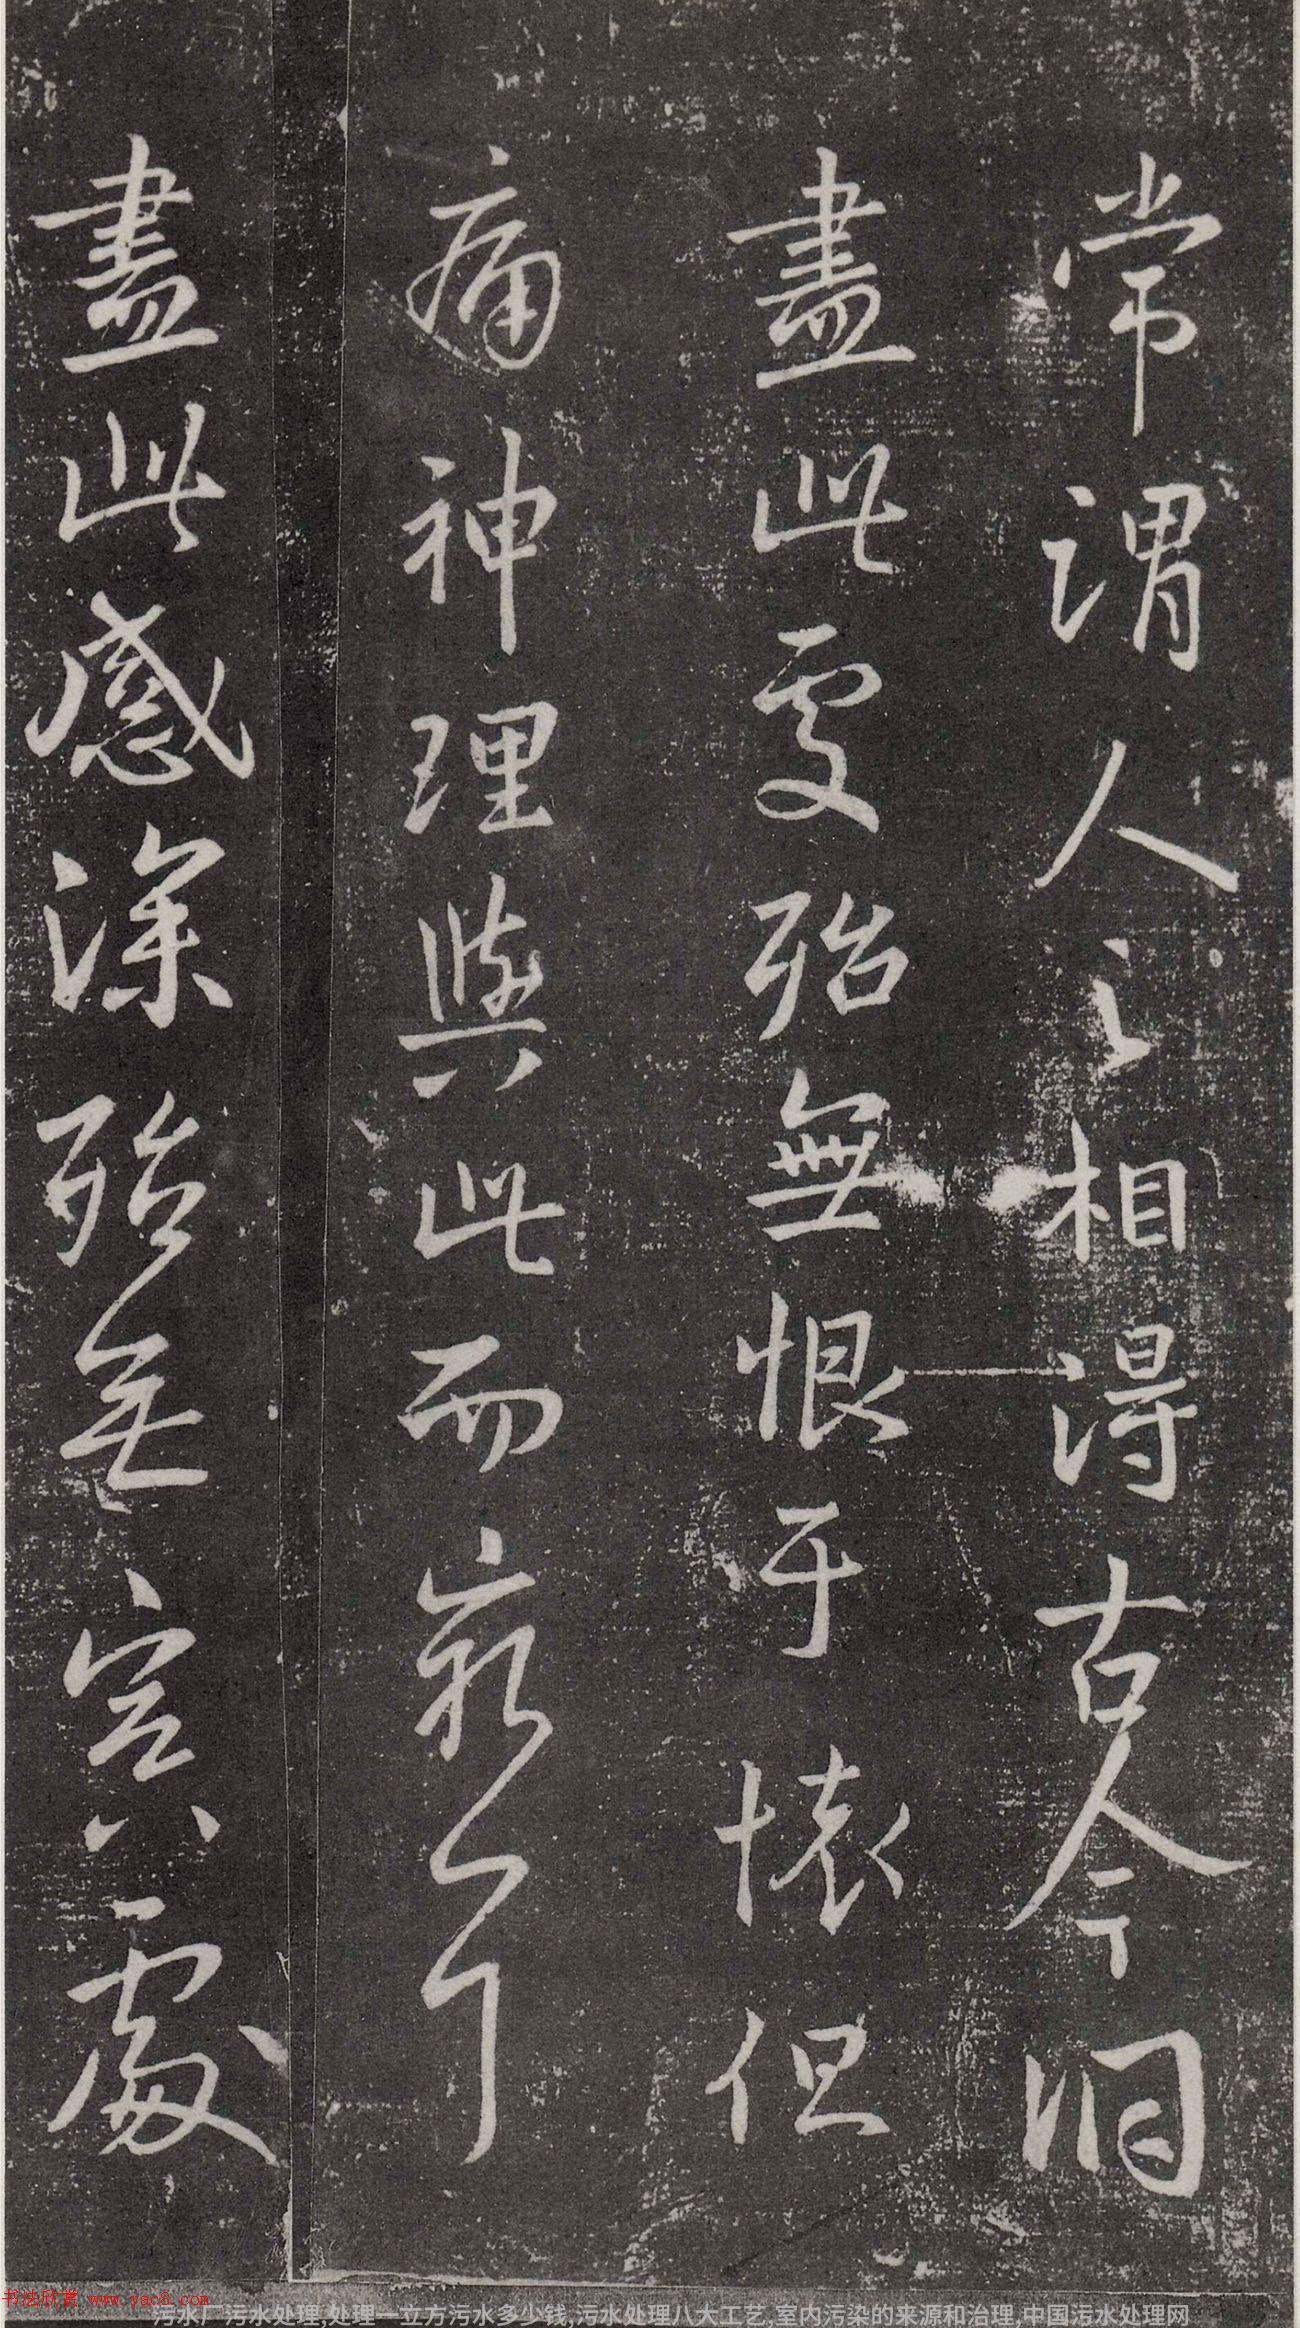 常謂人之相得古今洞
盡此處殆無恨于懷但
痛神理與此而窮耳
盡此感深殆無冥處
书法欣赏 www.yac8.com
污水厂污水处理,处理一立方污水多少钱,污水处理八大工艺,室内污染的来源和治理,中国污水处理网